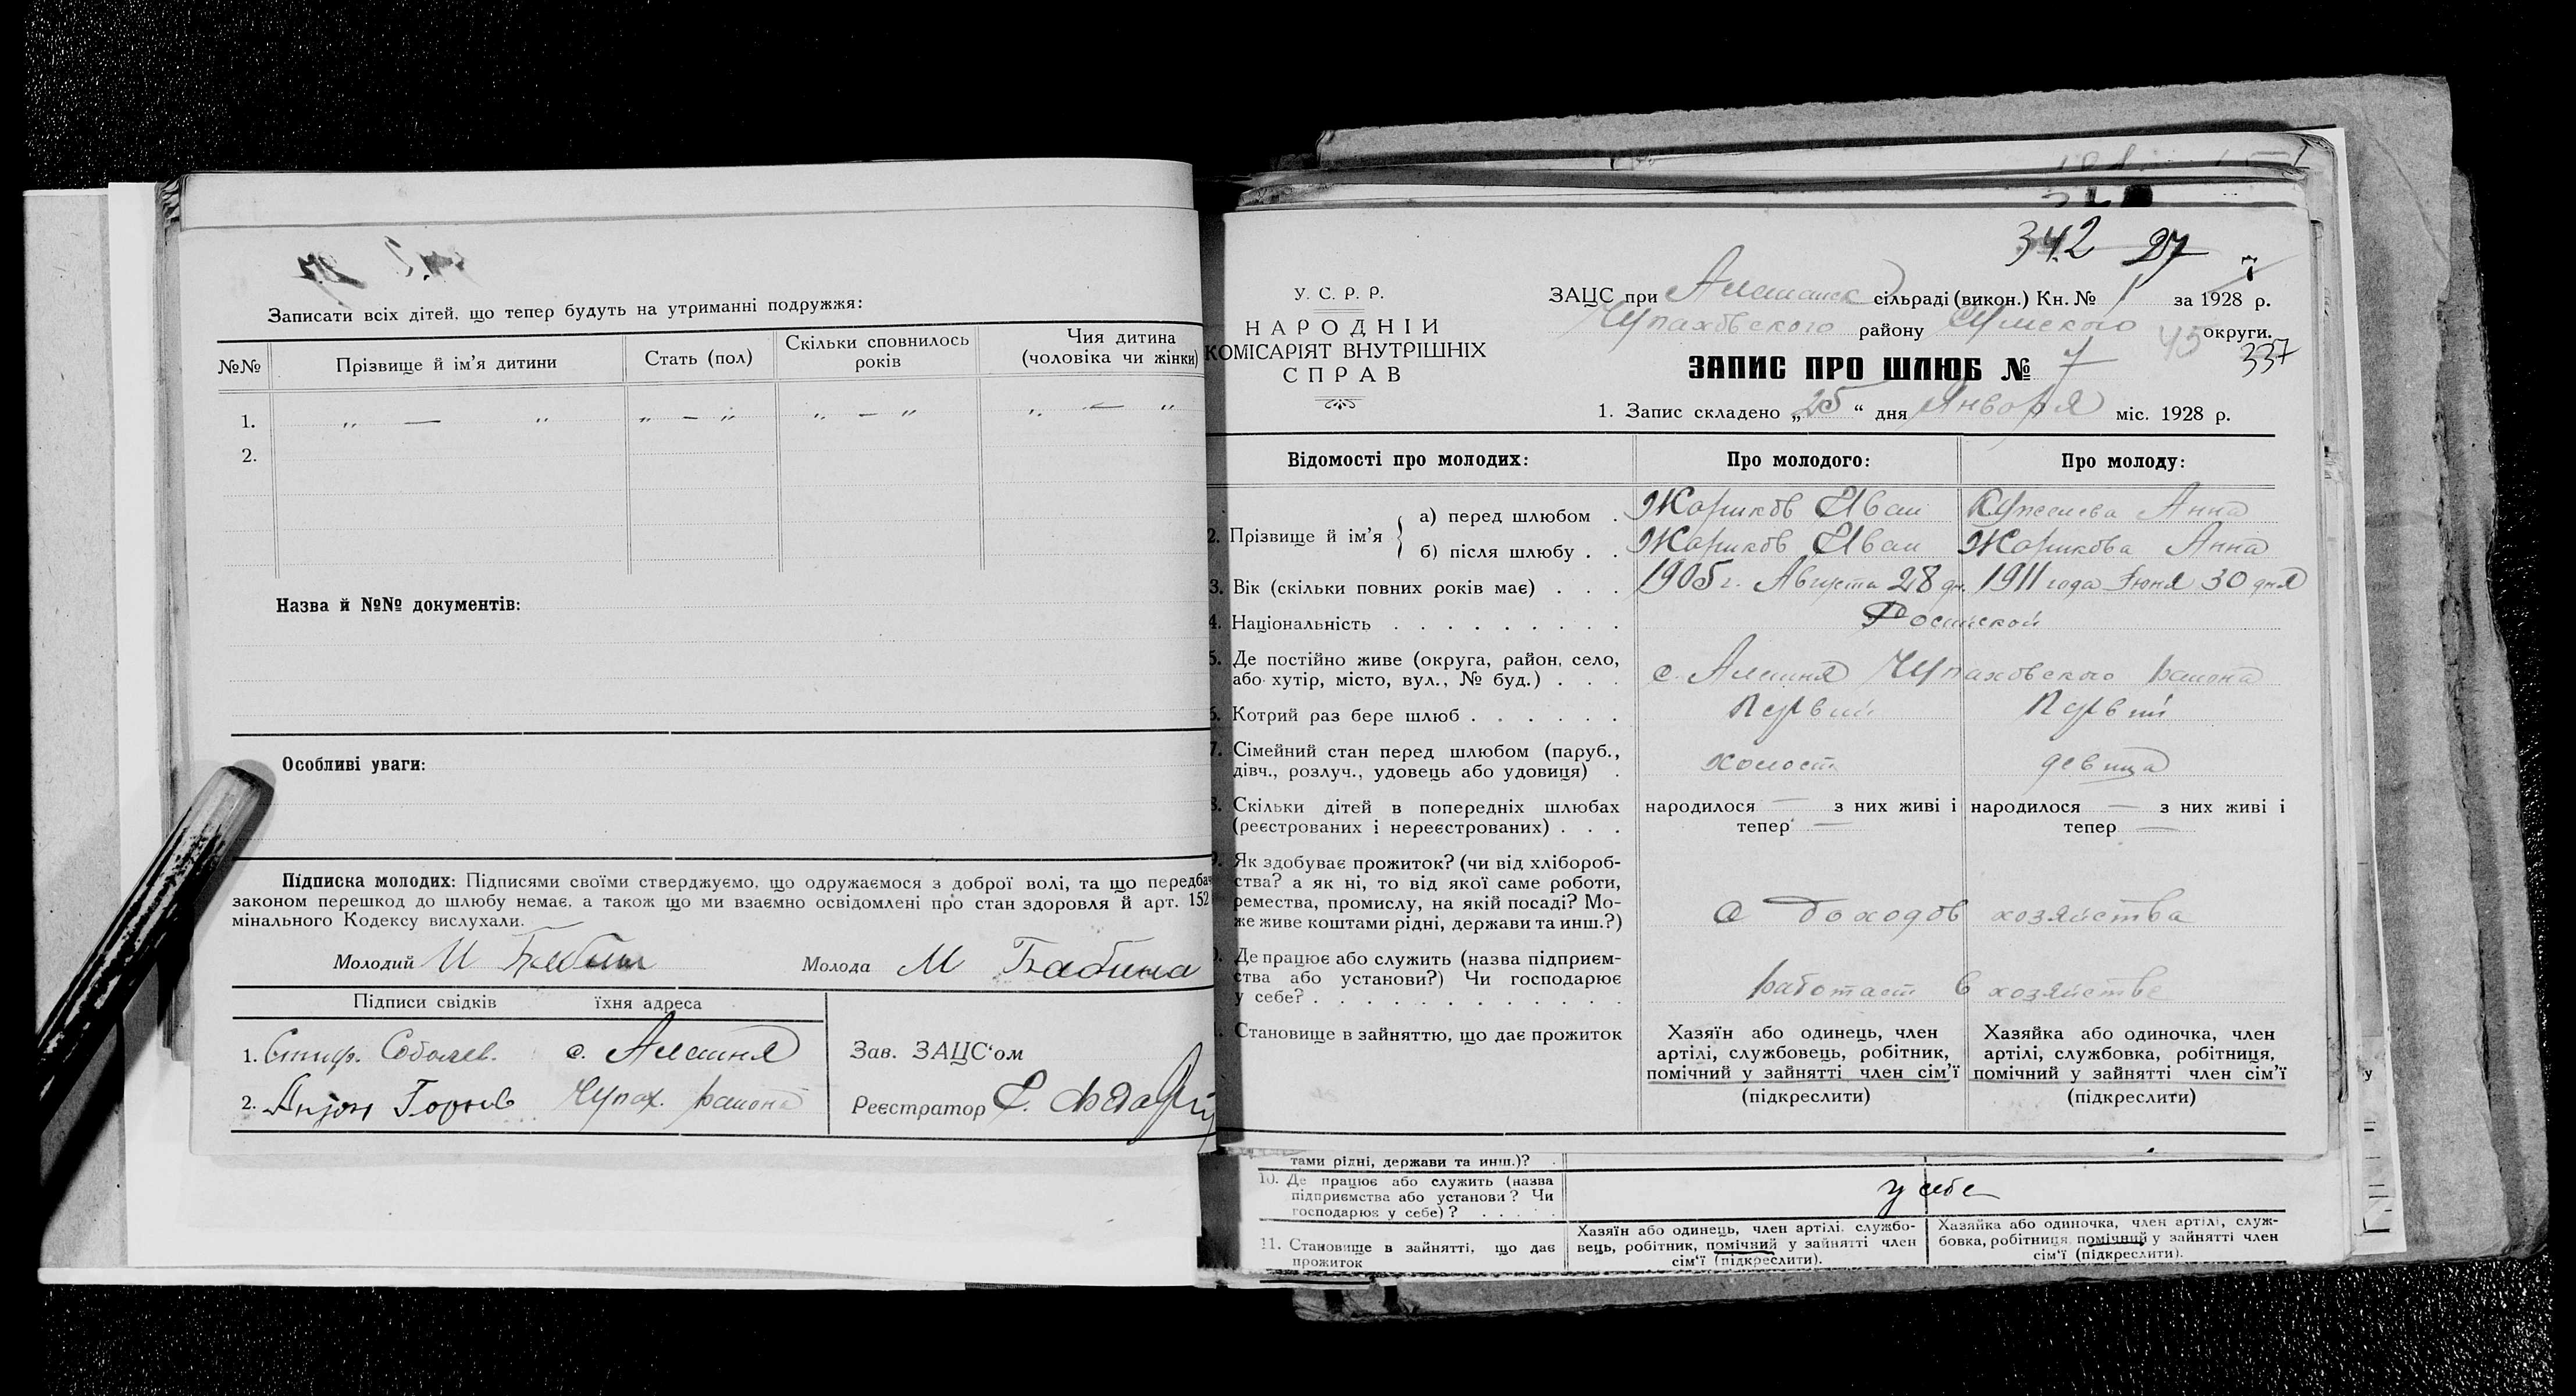 Записати всіх дітей, що тепер будуть на утриманні подружжя:
№№ Прізвище й ім'я дитини Стать (пол) Скільки сповнилось років Чия дитина (чоловіка чи жінки)
1. „ — „ „ — „ „ — „ „ — „
2.
Назва й №№ документів:
Особливі уваги:
Підписка молодих: Підписями своїми стверджуємо, що одружаємося з доброї волі, та що передбач
законом перешкод до шлюбу немає, а також що ми взаємно освідомлені про стан здоровля й арт. 152
мінального Кодексу вислухали.
Молодий И Бабин Молода М Бабина
Підписи свідків їхня адреса
1. Соболев. с. Алешня Зав. ЗАЦС'ом
2. Чупах. района Реєстратор
342 27
7
У. С. Р. Р.
НАРОДНІЙ
КОМІСАРІЯТ ВНУТРІШНІХ
СПРАВ
ЗАЦС при Алешанск сільраді (викон.) Кн. № 1 за 1928 р.
Чупаховского району Сумского округи.
45
337
ЗАПИС ПРО ШЛЮБ № 7
1. Запис складено „25" дня Января міс. 1928 р.
Відомості про молодих: Про молодого: Про молоду:
2. Прізвище й ім'я
а) перед шлюбом . Жориков Иван Анна
б) після шлюбу . . Жориков Иван Жорикова Анна
3. Вік (скільки повних років має) . . . 1905 г. Августа 28 дн. 1911 года Июня 30 дня
4. Національність . . . . . . . . . Росийской
5. Де постійно живе (округа, район, село,
або хутір, місто, вул., № буд.) . . . с. Алешня Чупаховского района
6. Котрий раз бере шлюб . . . . . . Первий Первий
7. Сімейний стан перед шлюбом (паруб.,
дівч., розлуч., удовець або удовиця) . холост девица
8. Скільки дітей в попередніх шлюбах
(реєстрованих і нереєстрованих) . . .
народилося — з них живі і тепер —
народилося — з них живі і тепер —
9. Як здобуває прожиток? (чи від хлібороб-
ства? а як ні, то від якої саме роботи,
ремества, промислу, на якій посаді? Мо-
же живе коштами рідні, держави та инш.?)
С доходов хозяйства
Де працює або служить (назва підприєм-
ства або установи?) Чи господарює
у себе? . . . . . . . . . . . . .
работает в хозяйстве
Становище в зайняттю, що дає прожиток
Хазяїн або одинець, член
артілі, службовець, робітник,
помічний у зайнятті член сім'ї
(підкреслити)
Хазяйка або одиночка, член
артілі, службовка, робітниця,
помічний у зайнятті член сім'ї
(підкреслити)
тами рідні, держави та инш.)?
10. Де працює або служить (назва
підприємства або установи? Чи
господарює у себе)? . . . . .
у себе
11. Становище в зайнятті, що дає
прожиток
Хазяїн або одинець, член артілі, службо-
вець, робітник, помічний у зайнятті член
сім'ї (підкреслити).
Хазяйка або одиночка, член артілі, служ-
бовка, робітниця, помічний у зайнятті член
сім'ї (підкреслити).